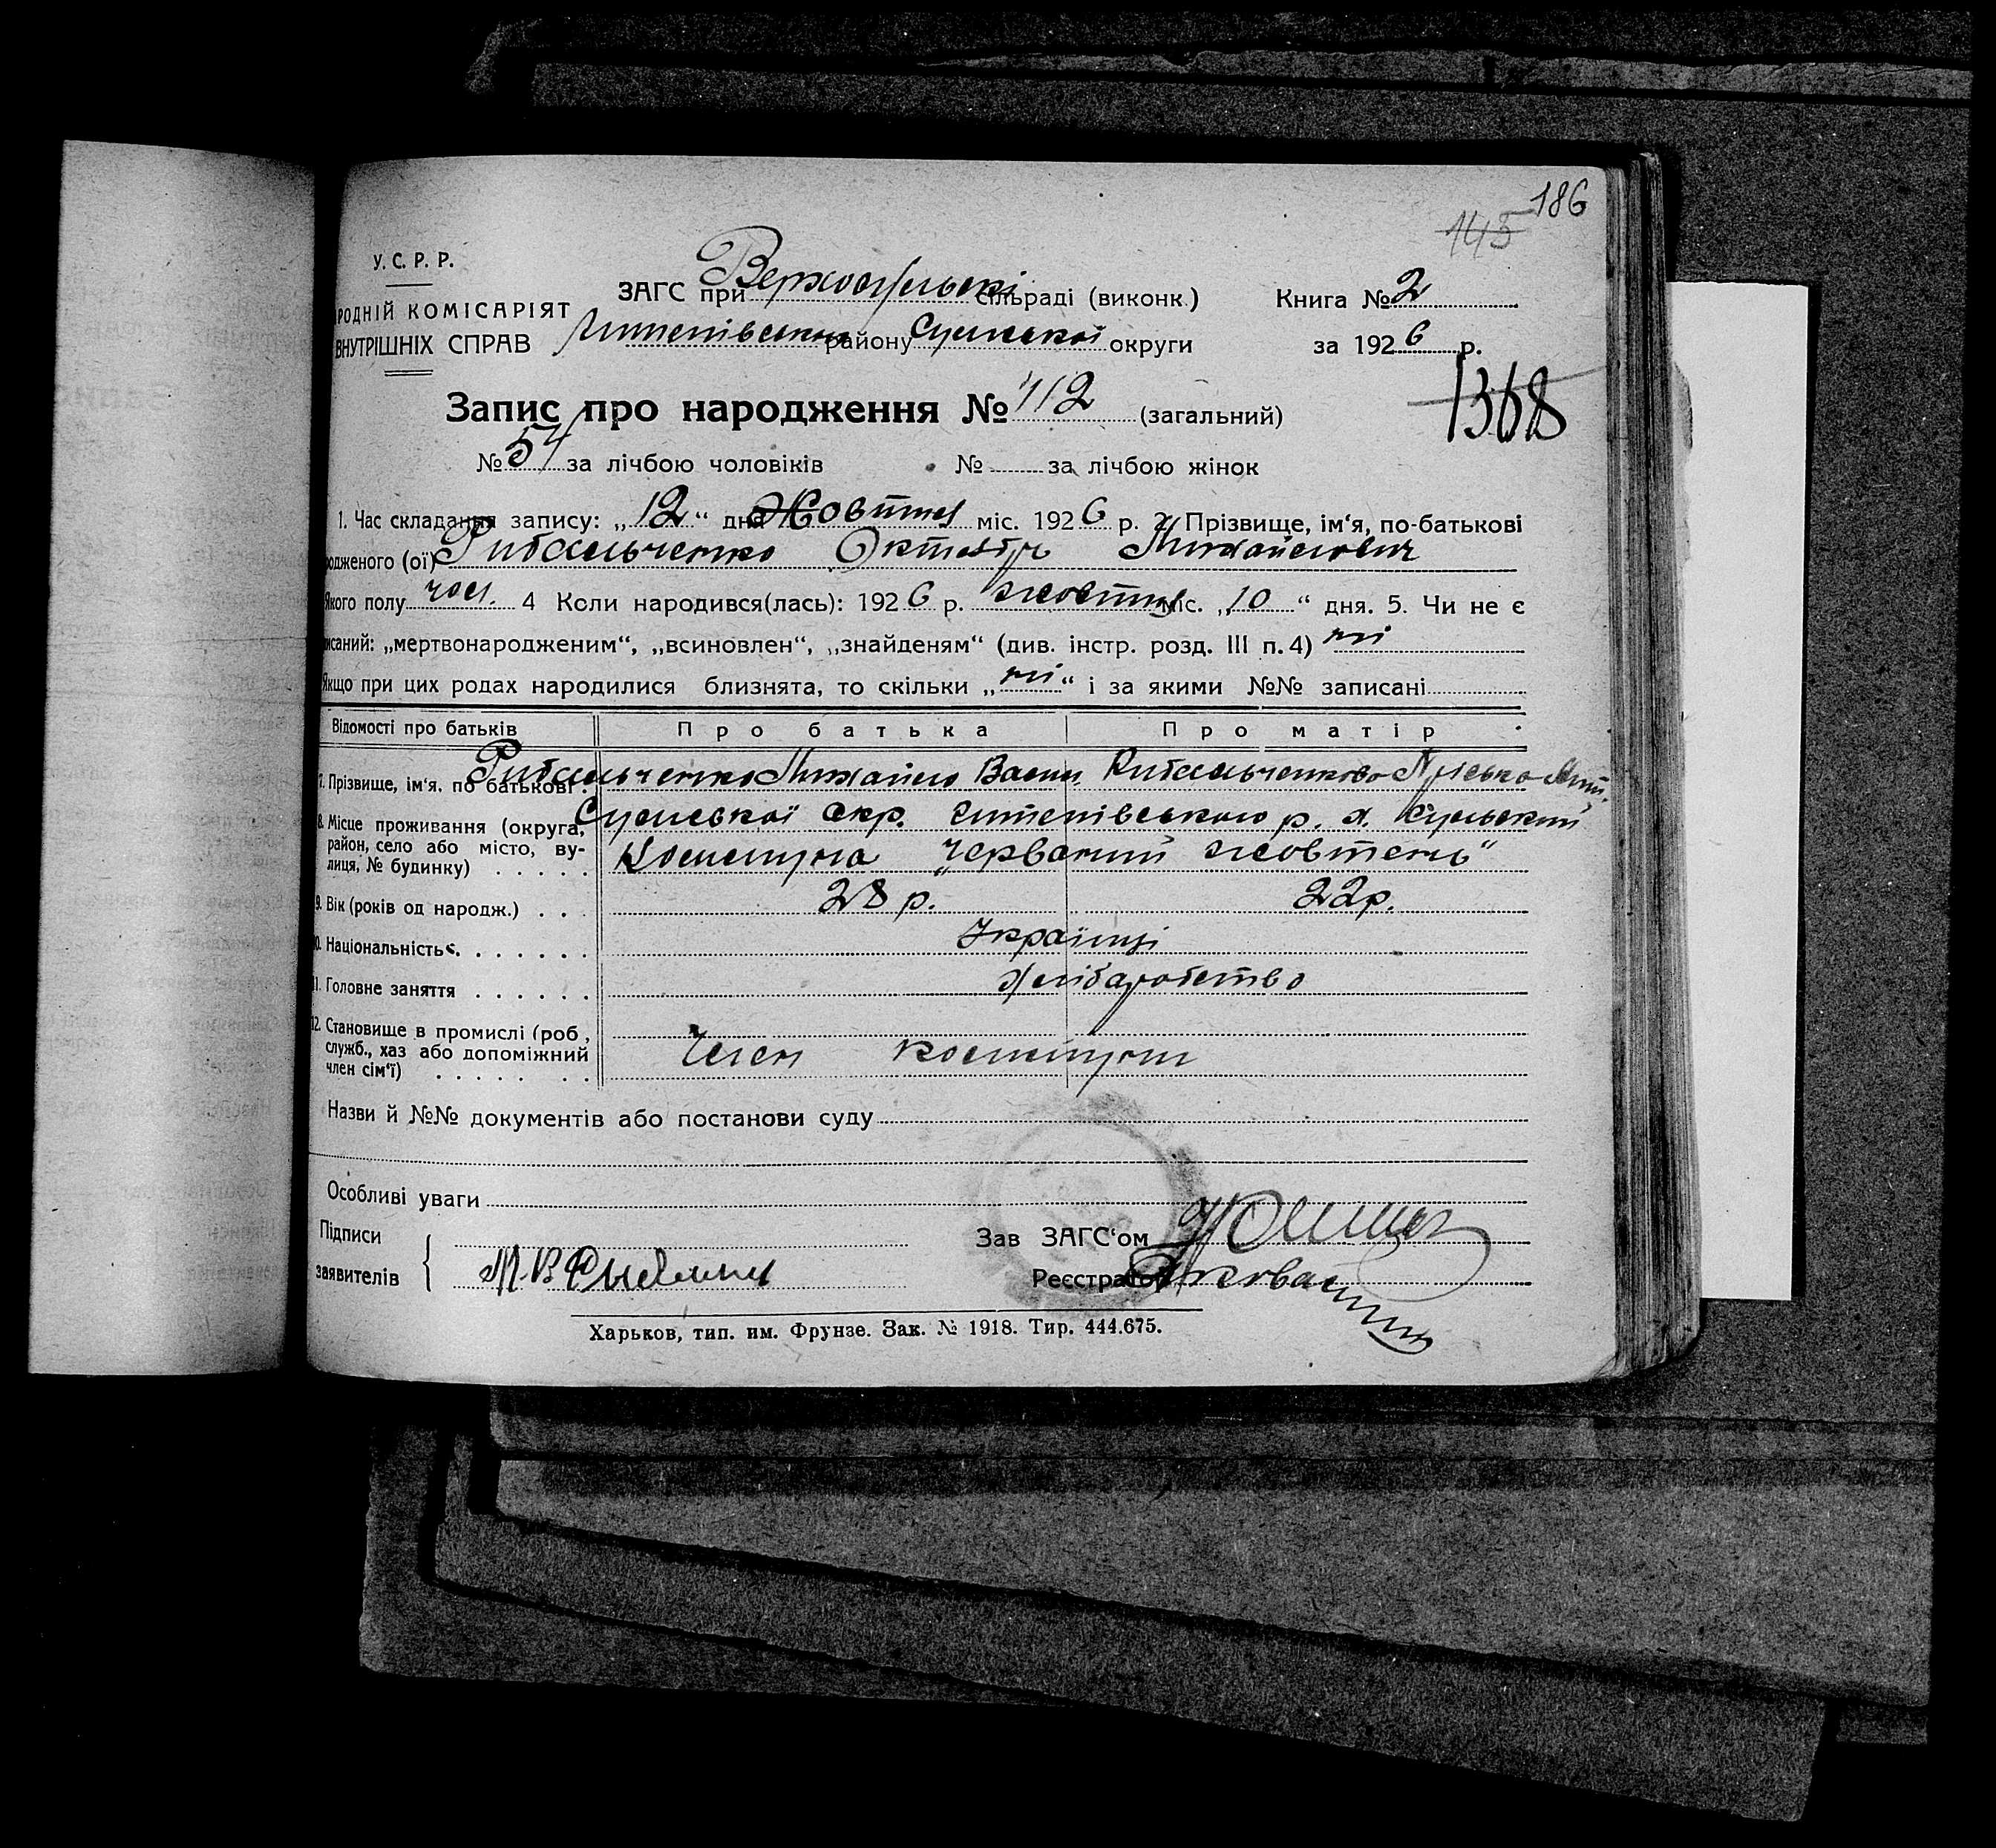 186
145
У. С. Р. Р.
РОДНІЙ КОМІСАРІЯТ
ВНУТРІШНІХ СПРАВ
ЗАГС при Верхосульскі сільраді (виконк.)
Штепівського району Сумської округи
Книга № 2
за 1926 р.
1368
Запис про народження № 112 (загальний)
№ 54 за лічбою чоловіків № за лічбою жінок
1. Час складання запису: „12“ дня Жовтня міс. 1926 р. 2. Прізвище, ім'я, по-батькові
одженого (ої) Рибальченко Октябр Михайлович
Якого полу чол. 4 Коли народився(лась): 1926 р. жовтня міс. „10“ дня. 5. Чи не є
исаний: „мертвонародженим“, „всиновлен“, „знайденям“ (див. інстр. розд. III п. 4) ні
Якщо при цих родах народилися близнята, то скільки „ні“ і за якими №№ записані
Відомості про батьків Про батька Про матір
7. Прізвище, ім'я, по батькові. Рибальченко Михайло Васил. Рибальченкова
8. Місце проживання (округа, район, село або місто, вулиця, № будинку) Сумської окр. Штепівського р. х. Сульский
Комуна „Червоний жовтень“
9. Вік (років од народж.) 28 р. 22 р.
10. Національність Українці
11. Головне заняття Хліборобство
12. Становище в промислі (роб, служб., хаз або допоміжний член сім'ї) Член комуни
Назви й №№ документів або постанови суду
Особливі уваги
Підписи
заявителів
Зав ЗАГС'ом
Реєстратор
Харьков, тип. им. Фрунзе. Зак. № 1918. Тир. 444.675.